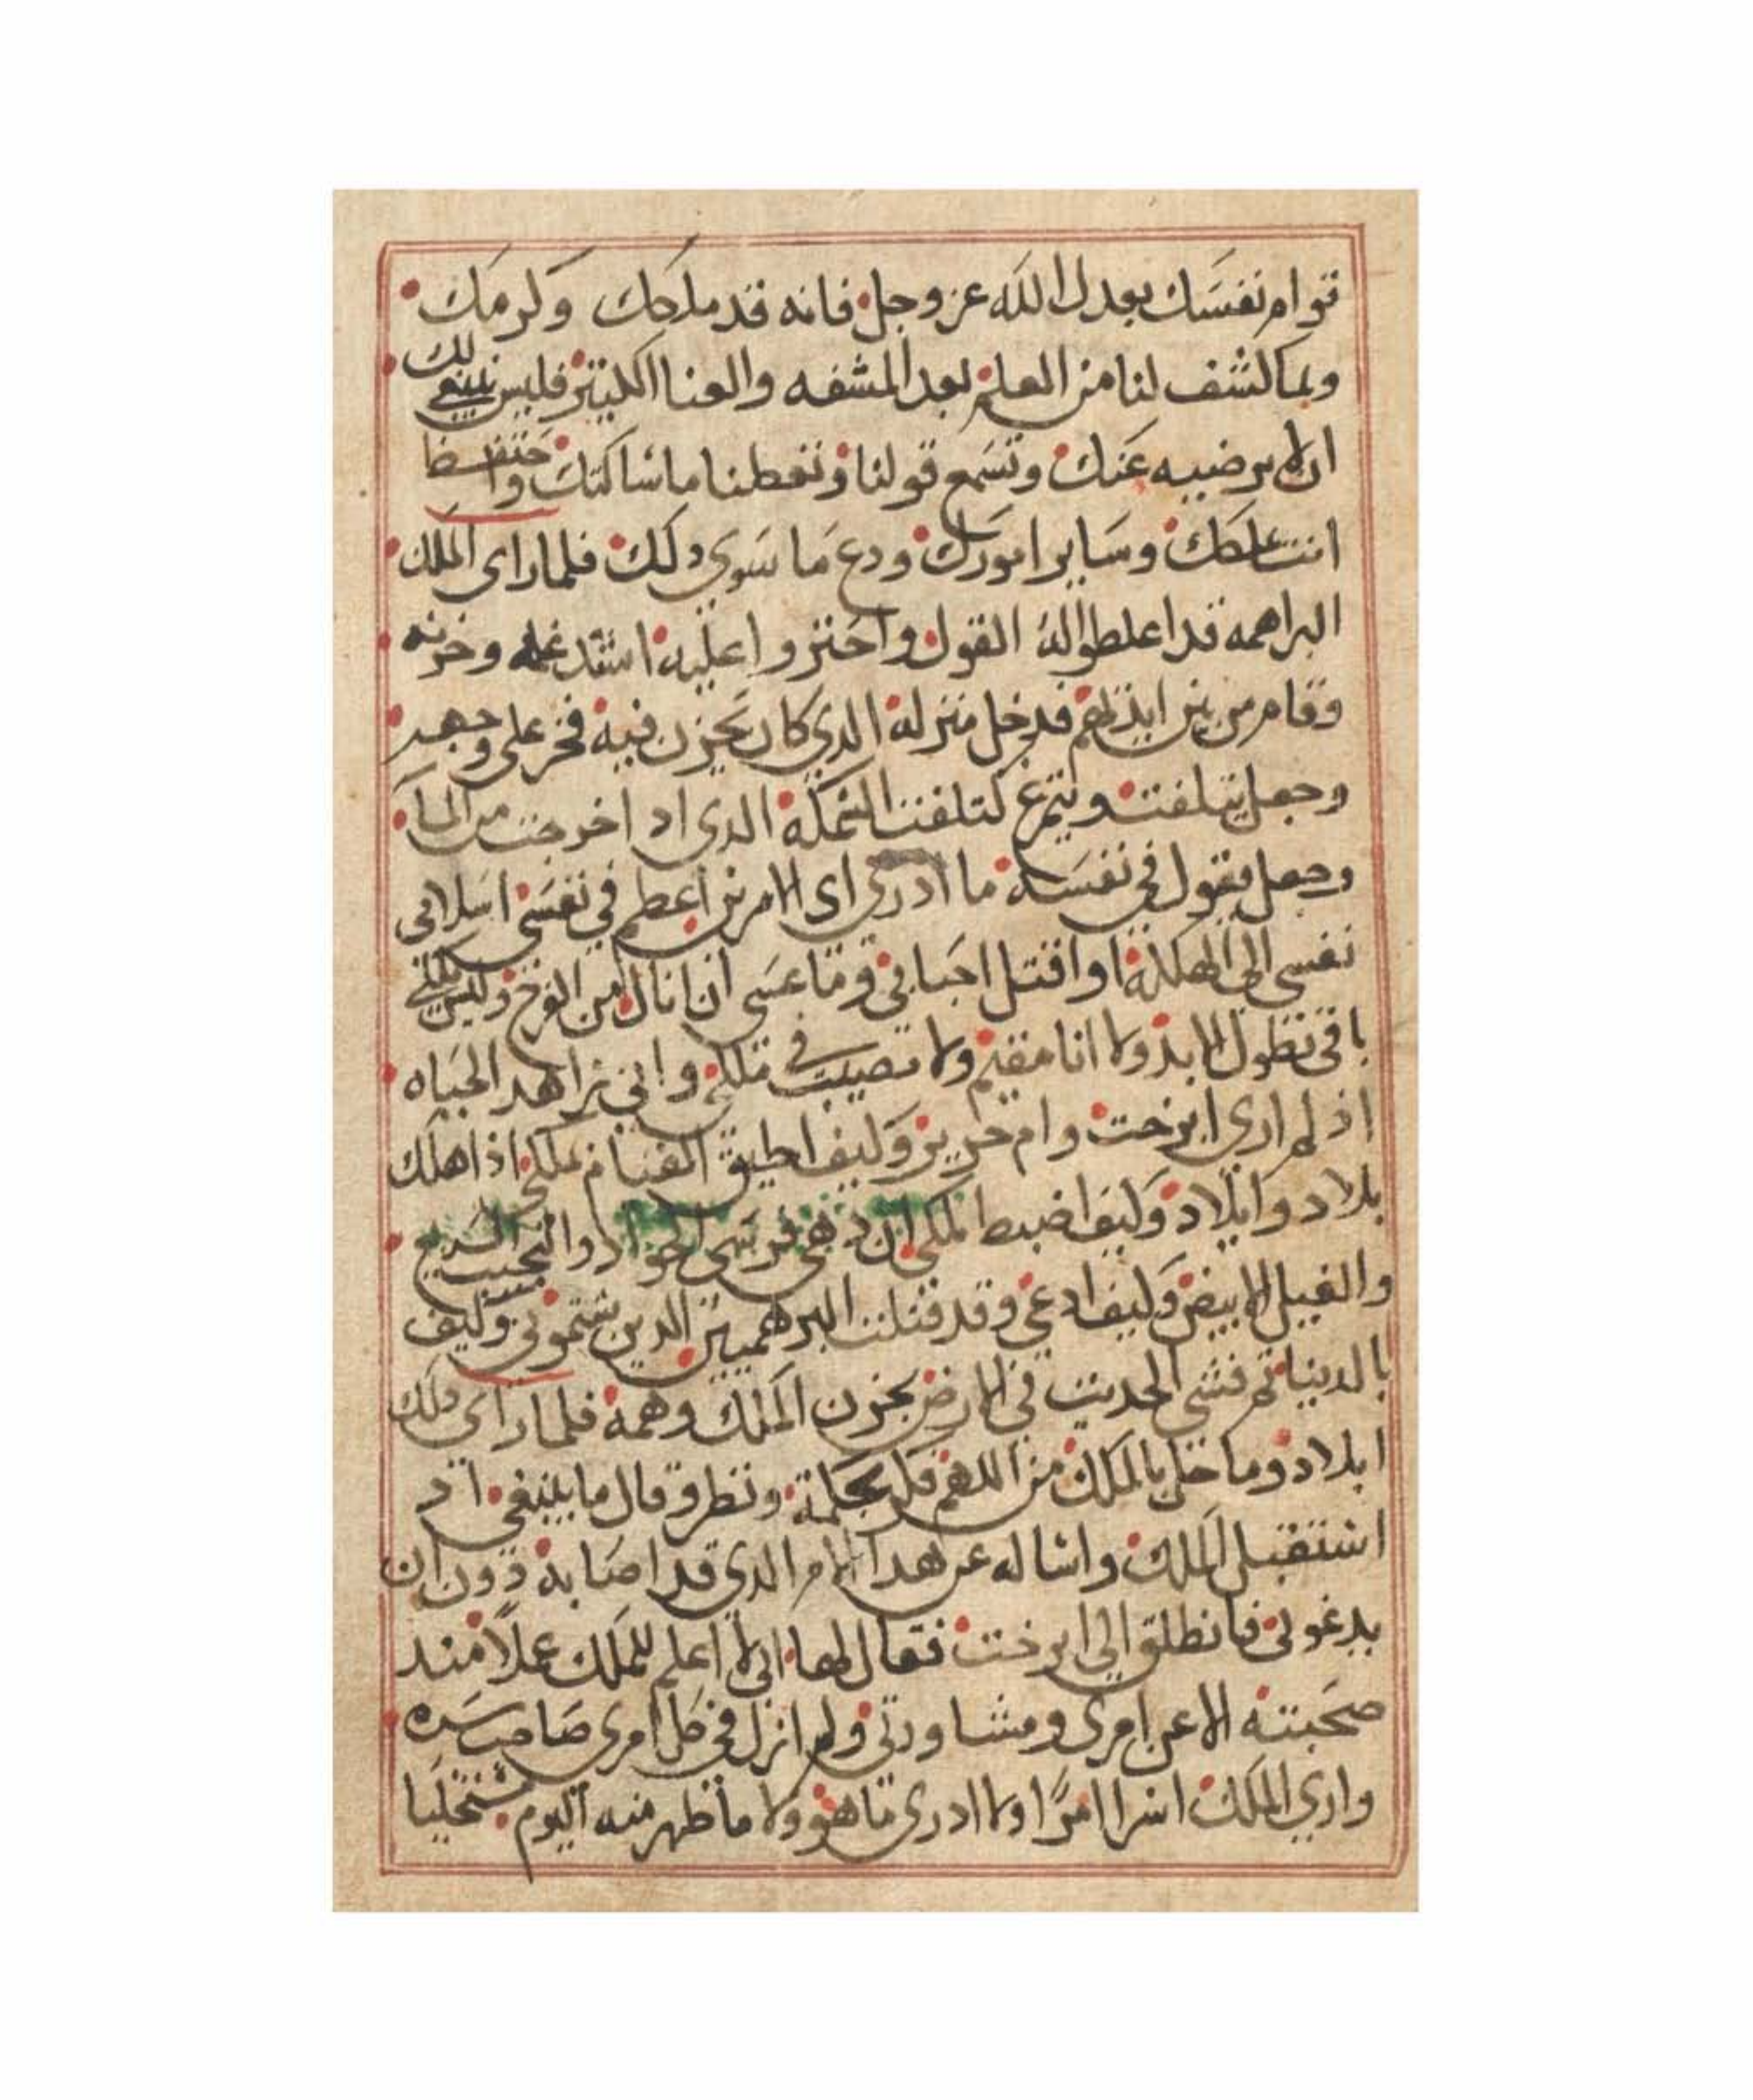 قوام نفسك بعدل الله عز وجل فانه قد ملاحك وكرمك
وبما كشف لنا من العلم بعد المشقه والعنا الكبير فليس ينبغي لك
ان لا يرضيه عنك وتسمع قولنا وتعطنا ما شاكتك واحتفظ
انت علمك وساير امورك ودع ما سوي دلك فلما راى الملك
البراهمه قد اغلطوا له القول واجتروا عليه اشتد غمه وحزنه
وقام من بين ايديهم فدخل منزله الدي كان يحزن فيه فخر على وجهه
وجعل يتلفت ويتمرغ كتلفت السمكة الدى اد اخرجت من الما
وجعل يقول في نفسه ما ادري اى الامرين اعظم في نفسي اسلامى
نفسي الى الهلكة او اقتل احبابي وما عسى ان انال من الفرح وليس ملكي
باقى بطول الابد ولا انا مقيم ولا تصيبت في ملكي واني زاهد الحياه
اذ لم ارى ايرخت وام حرير وكيف اطيق القيام بملكي اذا هلك
بلاد وايلاد وكيف اضبط ملكي ان دهى فرسى الجواد والنجيب السريع
والفيل الابيض وكيف ادعى وقد قتلت البرهميين الدين شتموني وكيف
بالدنيا ثم فشى الحديث في الارض بحزن الملك وهمه فلما راى دلك
ايلاد وما حل بالملك من الهم فكر بحكمة ونظر وقال ما ينبغي ان
استقبل الملك واساله عن هدا الامر الدى قد اصابه دون ان
يدعوني فانطلق الى ايرخت فقال لها اني لا اعلم للملك عملا منذ
صحبته الا عن امرى ومشاورتي ولم ازل في كل امرى صاحب سره
واري الملك اسر امرا ولا ادرى ما هو ولا ما ظهر منه اليوم مستخليا